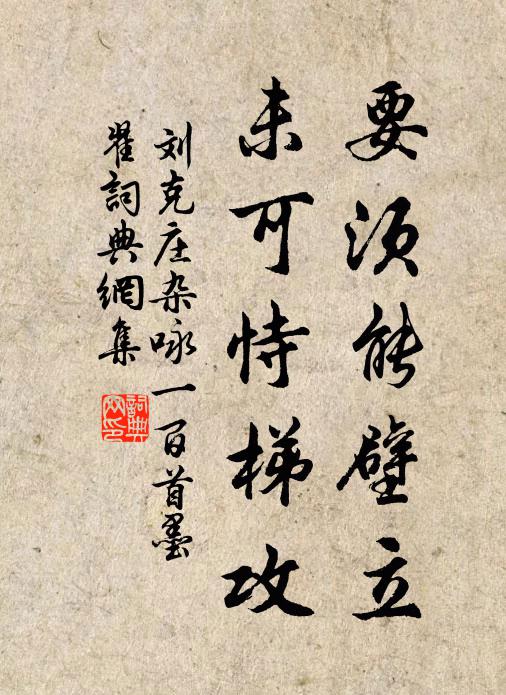 要须能壁立
未可恃梯攻
刘克庄杂咏一百首墨
翟詞典網集
詞典网印